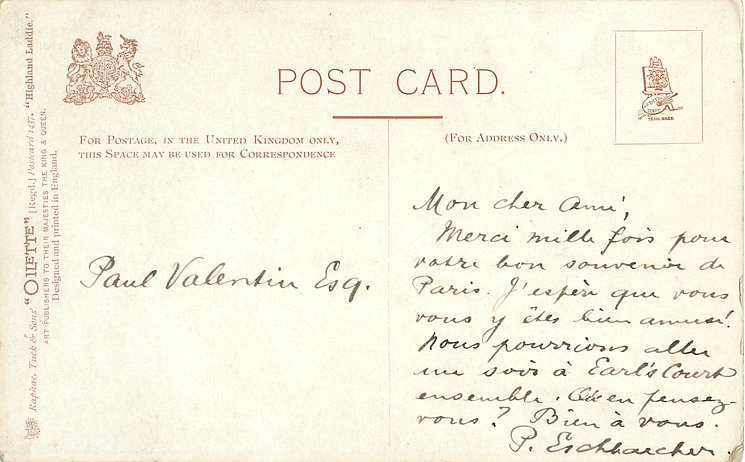 POST CARD.
FOR POSTAGE, IN THE UNITED KINGDOM ONLY,
THIS SPACE MAY BE USED FOR CORRESPONDENCE
(FOR ADDRESS ONLY.)
Raphael Tuck & Sons' "OILETTE" [Regd.] Postcard 1437. "Highland Laddie."
ART PUBLISHERS TO THEIR MAJESTIES THE KING & QUEEN.
Designed and printed in England.
Paul Valentin Esq.
Mon cher Ami,
Merci mille fois pour
votre bon souvenir de
Paris. J'espère que vous
vous y êtes bien amusé.
Nous pourrions aller
un soir à Earl's Court
ensemble. Qu'en pensez-
vous? Bien à vous.
P. Eschbaecher.